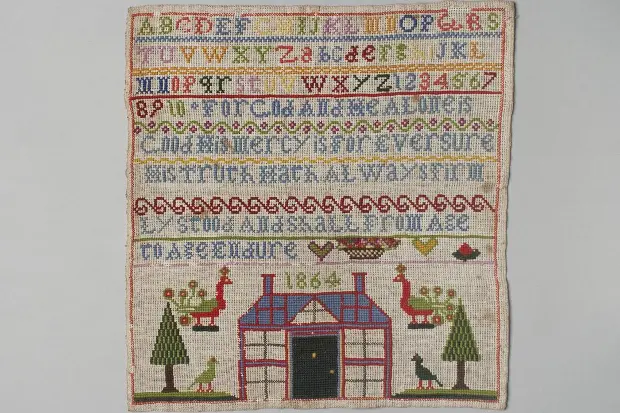 ABCDEF IJKLMNOPQRS
TUVVWXYZabcdefg IJKL
mnopqrstuvWXYZ1234567
8910*ForGodAndHeAloneis
GoodHisMercyisForEverSure
HisTruthHathALWaysFirm
LystoodAndShaLLFromAge
toAgeEndure
1864